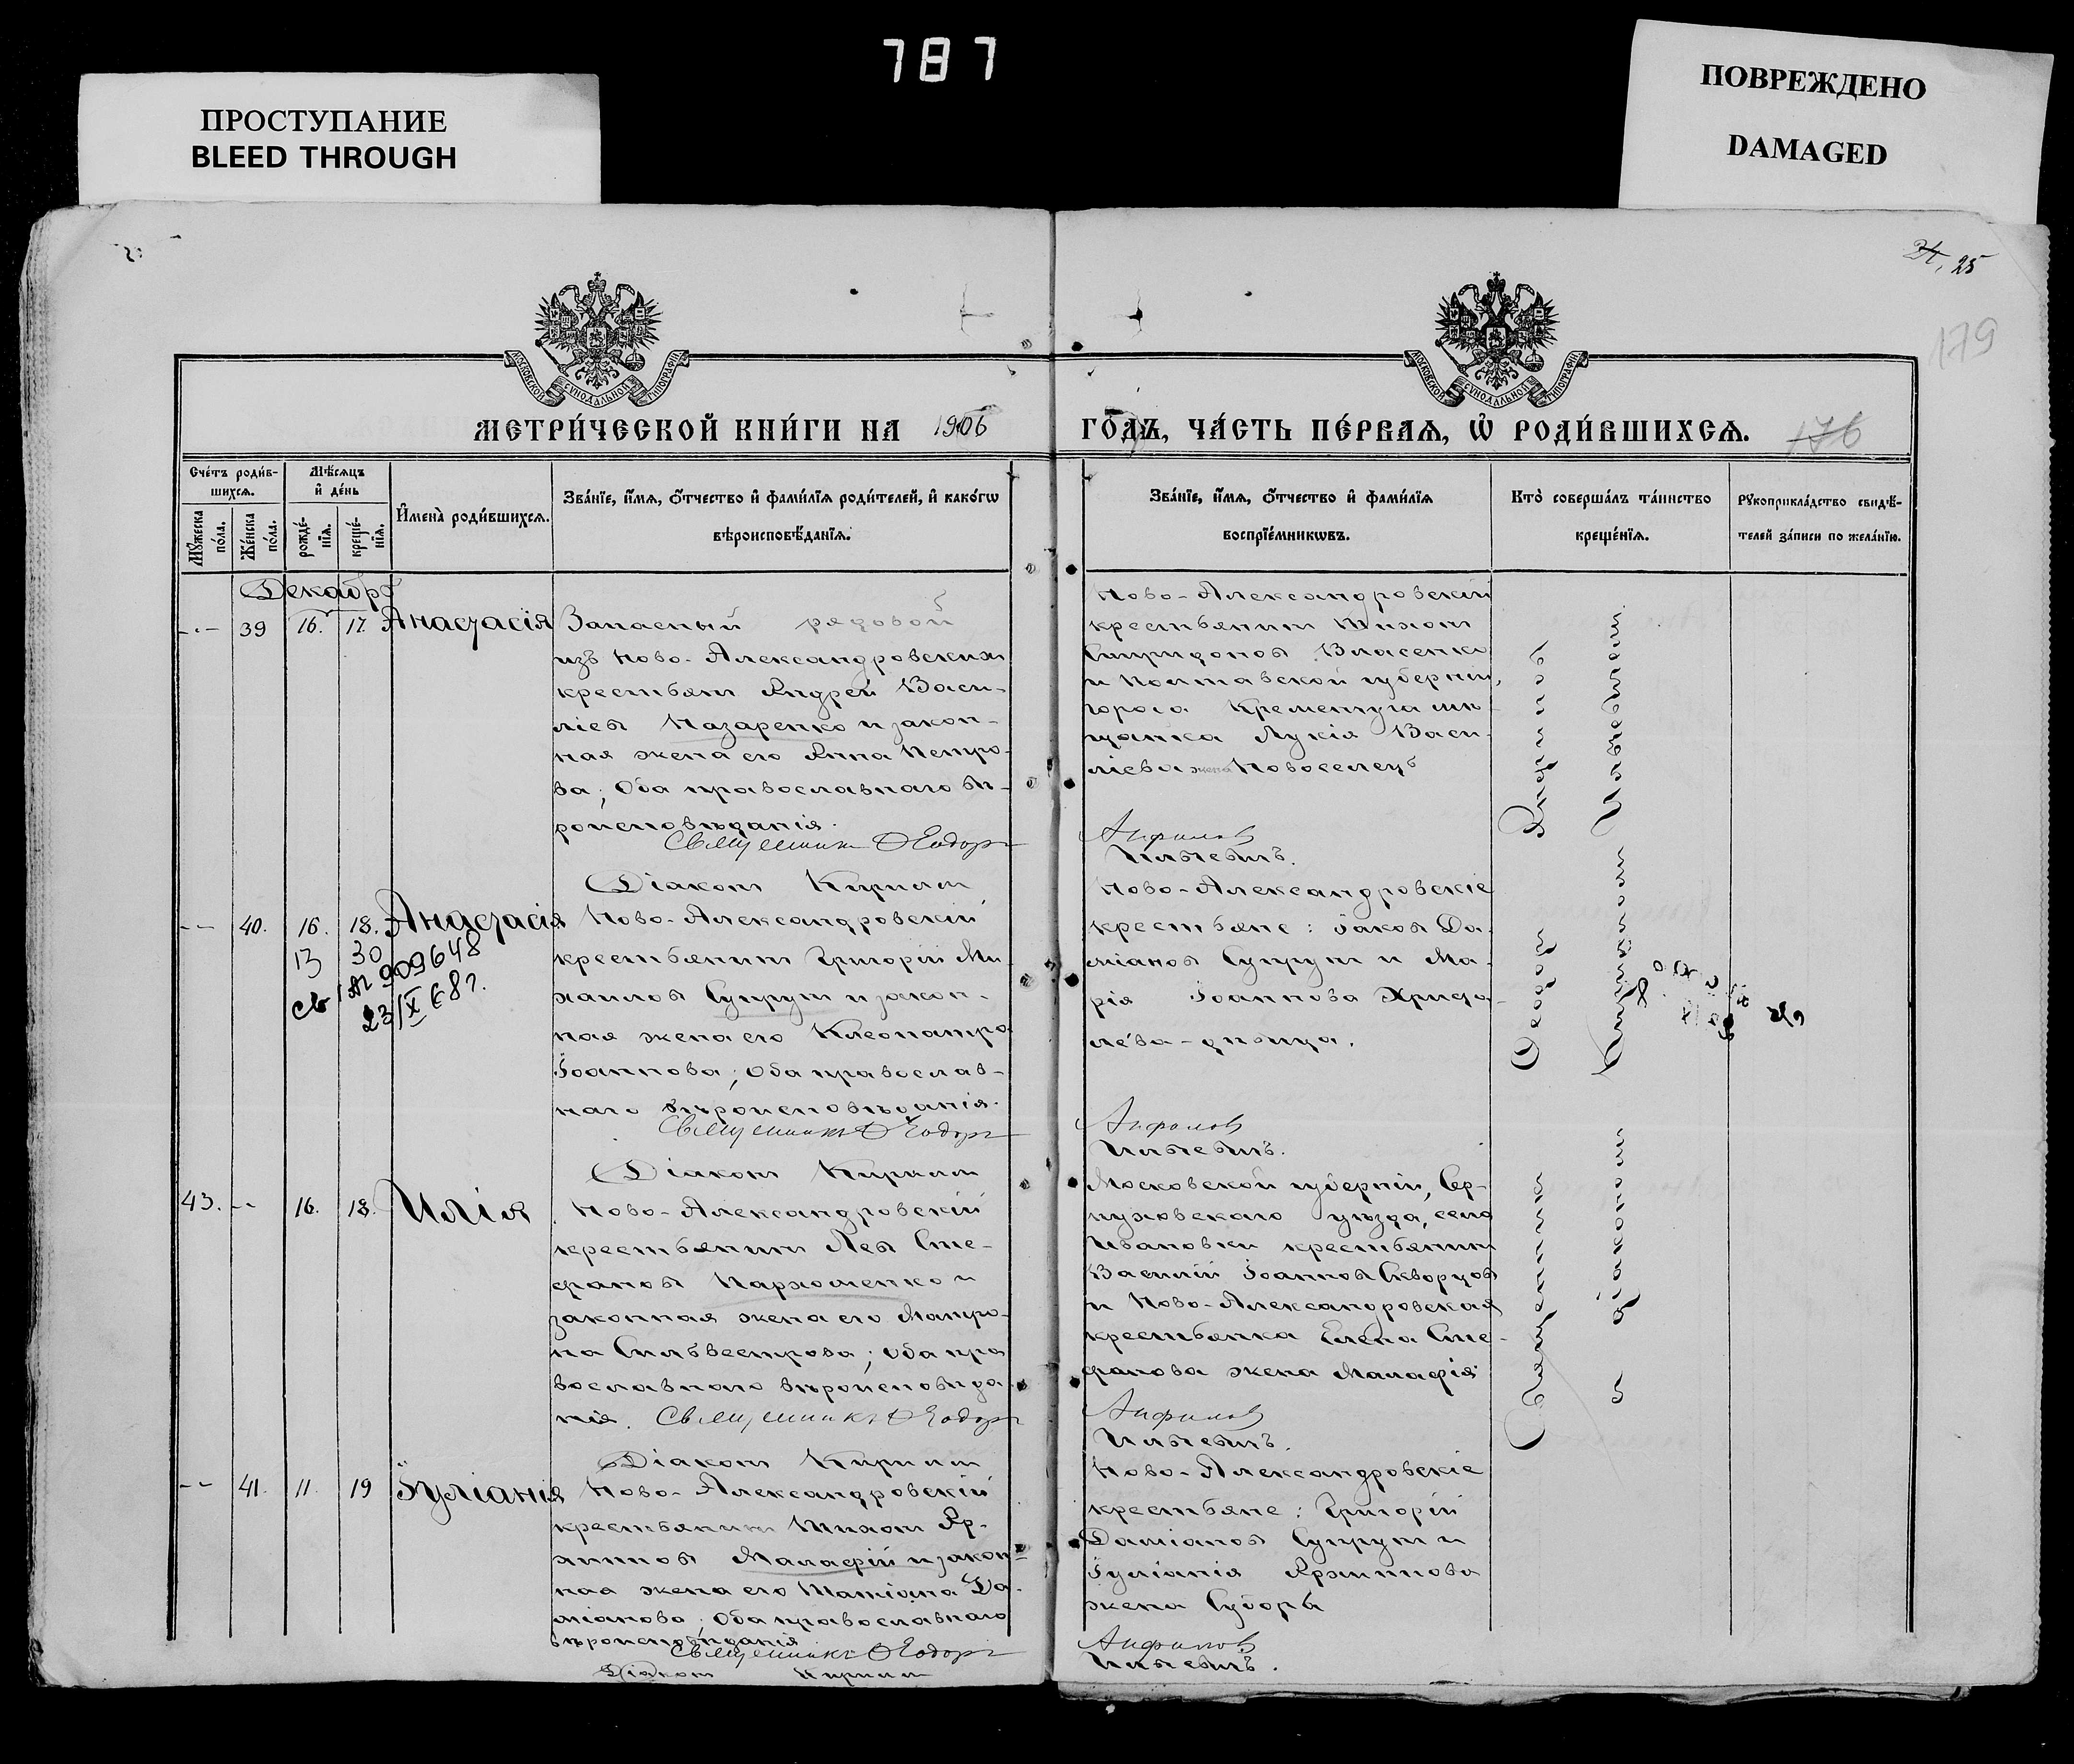 787
ПРОСТУПАНИЕ
BLEED THROUGH
ПОВРЕЖДЕНО
DAMAGED
25
179
МОСКОВСКОЙ СѴНОДАЛЬНОЙ ТИПОГРАФІИ
МОСКОВСКОЙ СѴНОДАЛЬНОЙ ТИПОГРАФІИ
МЕТРИ́ЧЕСКОЙ КНИ́ГИ НА 1906
ГО́ДЪ, ЧА́СТЬ ПЕ́РВАѦ, Ѡ҆ РОДИ́ВШИХСѦ.
176
Сче́тъ роди́в-
шихсѧ.
Мѣ́сѧцъ
и҆ де́нь
Мꙋ́жеска
по́ла.
Же́нска
по́ла.
рожде́-
нїѧ.
креще́-
нїѧ.
И҆мена̀ роди́вшихсѧ.
Зва́нїе, и҆́мѧ, ѻ҆́тчество и҆ фами́лїѧ роди́телей, и҆ како́гѡ
вѣроисповѣ́данїѧ.
Зва́нїе, и҆́мѧ, ѻ҆́тчество и҆ фами́лїѧ
воспрїе́мникѡвъ.
Кто̀ соверша́лъ та́инство
креще́нїѧ.
Рꙋкоприкла́дство свидѣ́-
телей за́писи по жела́нїю.
Декабрь
-·- 39 16. 17. Анастасія
Запасный рядовой
изъ Ново-Александровскихъ
крестьянъ Андрей Васи-
ліевъ Назаренко и закон-
ная жена его Анна Петро-
ва; Оба православнаго вѣ-
роисповѣданія.
Священникъ Ѳеодоръ
Діаконъ Кириллъ
Ново-Александровскій
крестьянинъ Тихонъ
Спиридоновъ Власенко
и Полтавской губерніи,
города Кременчуга мѣ-
щанка Лукія Васи-
ліева жена Новоселецъ
Анфиловъ
Ильевичъ.
-- 40. 16. 18. Анастасія
13 30
св № 909648
23/X 68 г.
Ново-Александровскій
крестьянинъ Григорій Ми-
хаиловъ Супрунъ и закон-
ная жена его Клеопатра
Іоаннова; Оба православ-
наго вѣроисповѣданія.
Священникъ Ѳеодоръ
Діаконъ Кириллъ
Ново-Александровскіе
крестьяне: Іаковъ Да-
міановъ Супрунъ и Ма-
рія Іоаннова
лева-дѣвица.
Анфиловъ
Ильевичъ.
43. -- 16. 18. Илія
Ново-Александровскій
крестьянинъ Левъ Сте-
фановъ Пархоменко и
законная жена его Матро-
на Сильвестрова; Оба пра
вославнаго вѣроисповѣда
нія. Священникъ Ѳеодоръ
Діаконъ Кириллъ
Московской губерніи, Сер-
пуховскаго уѣзда, села
Ивановки крестьянинъ
Василій Іоанновъ Скворцовъ
и Ново-Александровская
крестьянка Елена Сте-
фанова жена Малафій
Анфиловъ
Ильевичъ.
-- 41. 11. 19 Іуліанія
Ново-Александровскій
крестьянинъ Тихонъ Ар-
хиповъ Малафій и закон-
ная жена его Татіана Да-
міанова; Оба православнаго
вѣроисповѣданія
Священникъ Ѳеодоръ
Діаконъ Кириллъ
Ново-Александровскіе
крестьяне: Григорій
Даміановъ Супрунъ и
Іуліанія Архиппова
жена
Анфиловъ
Ильевичъ.
Священникъ
Ѳеодоръ
Анфиловъ
съ діакономъ
Кирилломъ
Ильевичемъ